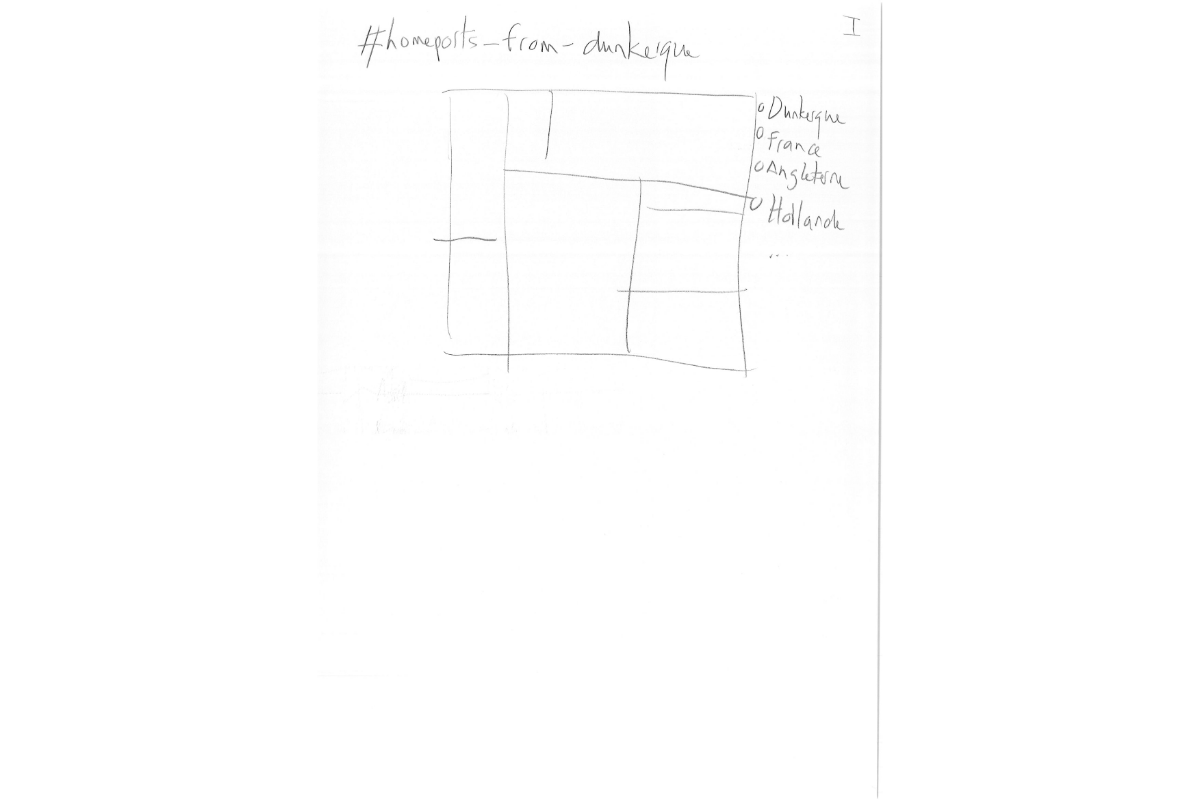 I
#homeports_from-dunkerque
Dunkerque
France
Angleterre
Hollande
...